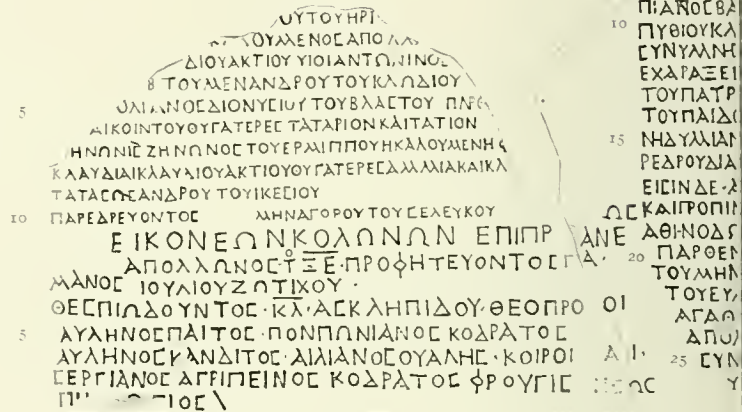 ΟΥΤΟΥΗΡΙ
ΟΥΜΕΝΟΣΑΠΟΛΛ
ΔΙΟΥΑΚΤΙΟΥ ΥΙΟΙΑΝΤΩΝΙΝΟΣ
ΤΟΥΜΕΝΑΝΔΡΟΥΤΟΥΚΛΩΔΙΟΥ
5 ΛΙΑΝΟΣΔΙΟΝΥΣΙΟΥ ΤΟΥΒΛΑΣΤΟΥ
ΑΙΚΟΙΝΤΟΥΘΥΓΑΤΕΡΕΣ ΤΑΤΑΡΙΟΝ ΚΑΙΤΑΤΙΟΝ
ΗΝΩΝΙΣ ΖΗΝΩΝΟΣ ΤΟΥΕΡΜΙΠΠΟΥΗΚΑΛΟΥΜΕΝΗ
ΚΛΑΥΔΙΑΙΚΛΑΥΔΙΟΥΑΚΤΙΟΥΘΥΓΑΤΕΡΕΣΑΜΜΙΑΚΑΙΚΛ
ΤΑΤΑΣΩΣΑΝΔΡΟΥ ΤΟΥΙΚΕΣΙΟΥ
10 ΠΑΡΕΔΡΕΥΟΝΤΟΣ ΜΗΝΑΓΟΡΟΥΤΟΥΣΕΛΕΥΚΟΥ
ΕΙΚΟΝΕΩΝΚΟΛΩΝΩΝ ΕΠΙΠΡ ΑΝΕ ΩΣ
ΑΠΟΛΛΩΝΟΣ·Τ̊ΞΕ·ΠΡΟΦΗΤΕΥΟΝΤΟΣ Γ Α·
ΜΑΝΟΣ ΙΟΥΛΙΟΥΖΩΤΙΧΟΥ·
ΘΕΣΠΙΩΔΟΥΝΤΟΣ·ΚΛ·ΑΣΚΛΗΠΙΔΟΥ·ΘΕΟΠΡΟ ΟΙ
5 ΑΥΛΗΝΟΣΠΑΙΤΟΣ·ΠΟΝΠΩΝΙΑΝΟΣ ΚΟΔΡΑΤΟΣ
ΑΥΛΗΝΟΣΚΑΝΔΙΤΟΣ·ΑΙΛΙΑΝΟΣΟΥΑΛΗΣ·ΚΟΙΡΟΙ
ΣΕΡΓΙΑΝΟΣ ΑΓΡΙΠΕΙΝΟΣ ΚΟΔΡΑΤΟΣ ΦΡΟΥΓΙΣ ΩΣ
ΤΙΟΣ
ΠΙΑΝΟΣΒΑ
10 ΠΥΘΙΟΥΚΛ
ΣΥΝΥΜΝΗ
ΕΧΑΡΑΞΕΙ
ΤΟΥΠΑΤΡ
ΤΟΥΠΑΙΔ
15 ΝΗΔΥΜΙΑΝ
ΡΕΔΡΟΥΔΙΑ
ΕΙΣΙΝΔΕ·Α
ΚΑΙΓΡΟΠΙΝ
ΑΘΙΝΟΔΣ
20 ΠΑΡΘΕΝ
ΤΟΥΜΗΝ
ΤΟΥΕΥ
ΑΓΑΘ
ΑΠΟΛ
25 ΣΥΝ
Υ